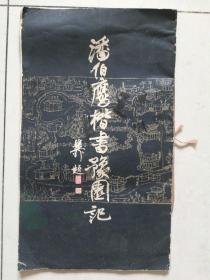 潘伯鹰楷书豫园记